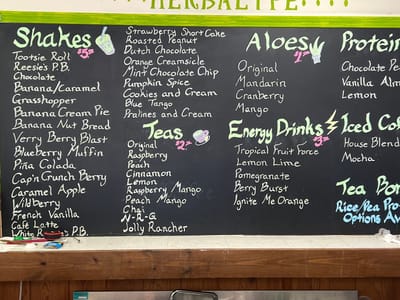 HERBALIFE
Shakes $5
Tootsie Roll
Reesie's P.B.
Chocolate
Banana/Caramel
Grasshopper
Banana Cream Pie
Banana Nut Bread
Verry Berry Blast
Blueberry Muffin
Piña Colada
Cap'n Crunch Berry
Caramel Apple
Wildberry
French Vanilla
Café Latte
White P.B.
Strawberry Short Cake
Roasted Peanut
Dutch Chocolate
Orange Creamsicle
Mint Chocolate Chip
Pumpkin Spice
Cookies and Cream
Blue Tango
Pralines and Cream
Teas
Original
Raspberry
Peach
Cinnamon
Lemon
Raspberry Mango
Peach Mango
Chai
N-R-G
Jolly Rancher
Aloes
Original
Mandarin
Cranberry
Mango
Energy Drinks
Tropical Fruit Force
Lemon Lime
Pomegranate
Berry Burst
Ignite Me Orange
Protein
Chocolate Pe
Vanilla Alm
Lemon
Iced Cof
House Blend
Mocha
Tea Bo
Rice/Pea Pro
Options Av